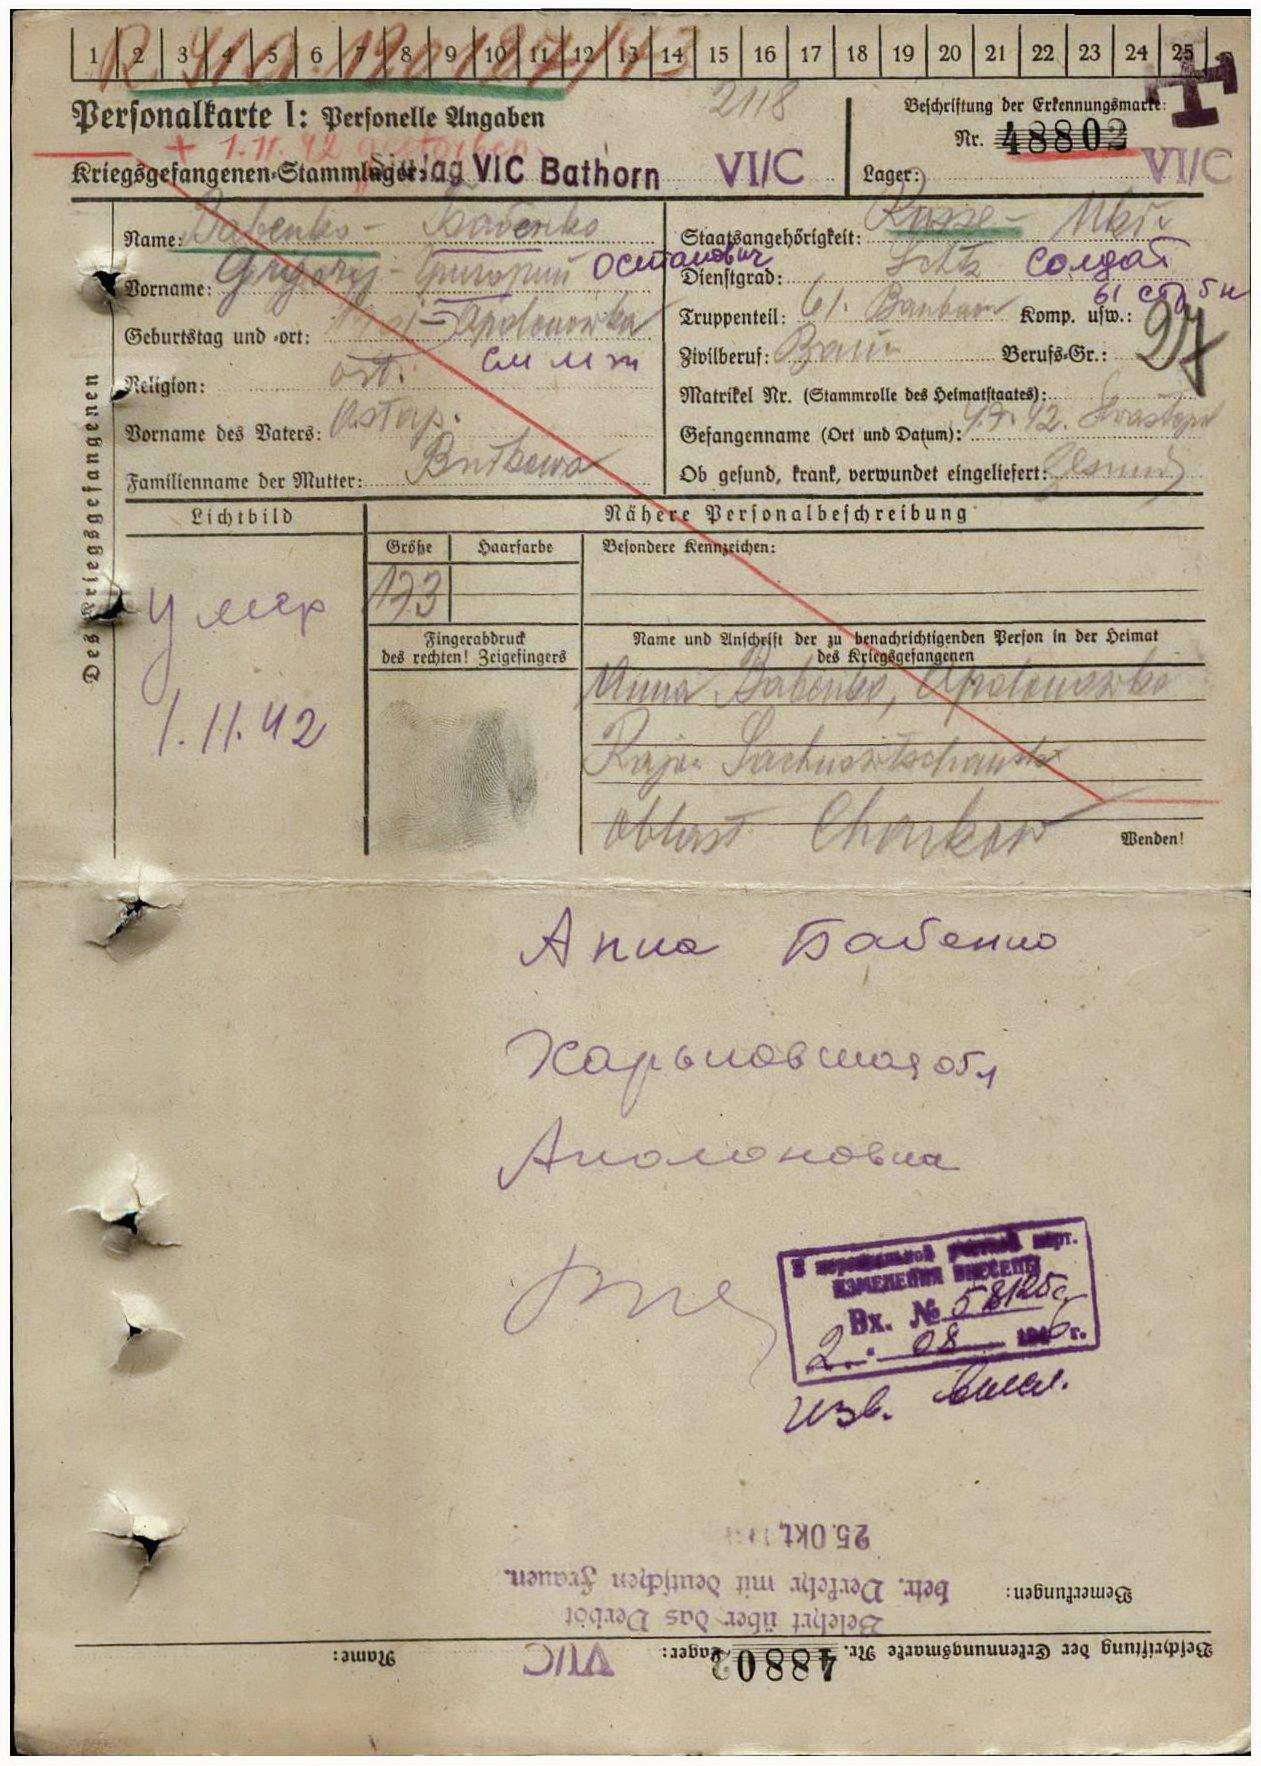 1 2 3 4 5 6 7 8 9 10 11 12 13 14 15 16 17 18 19 20 21 22 23 24 25
2118
Personalkarte I: Personelle Angaben
Beschriftung der Erkennungsmarke:
Nr. 48802
+ 1.11.42 gestorben
Kriegsgefangenen-Stammlager: Stalag VIC Bathorn VI/C
Lager: VI/C
Des Kriegsgefangenen
Name: Babenko - Бабенко
Vorname: Grigory - Григорий Остапович
Geburtstag und -ort: Apolonowka
см м ж
Religion: ort.
Vorname des Vaters: Astap.
Familienname der Mutter: Butkowa
Staatsangehörigkeit: Russe - Ukr.
Dienstgrad: Schtz солдат
61 стр б н
Truppenteil: 61. Komp. usw.:
Zivilberuf: Bauer Berufs-Gr.: 27
Matrikel Nr. (Stammrolle des Heimatstaates):
Gefangenname (Ort und Datum): 4.7.42.
Ob gesund, krank, verwundet eingeliefert: Gesund
Lichtbild
умер
1.11.42
Nähere Personalbeschreibung
Größe Haarfarbe Besondere Kennzeichen:
173
Fingerabdruck
des rechten! Zeigefingers
Name und Anschrift der zu benachrichtigenden Person in der Heimat
des Kriegsgefangenen
Anna Babenko, Apolonowka
Rajon
Oblast Charkow
Wenden!
Анна Бабенко
Харьковская обл
Аполоновка
В персональной учетной карт.
ИЗМЕНЕНИЯ ВНЕСЕНЫ
Вх. № 58125с
2 08 1946 г.
изв.
25. Okt.
Bemerkungen: betr. Verkehr mit deutschen Frauen.
Belehrt über das Verbot
Beschriftung der Erkennungsmarke Nr. 48802 Lager: VI/C Name: